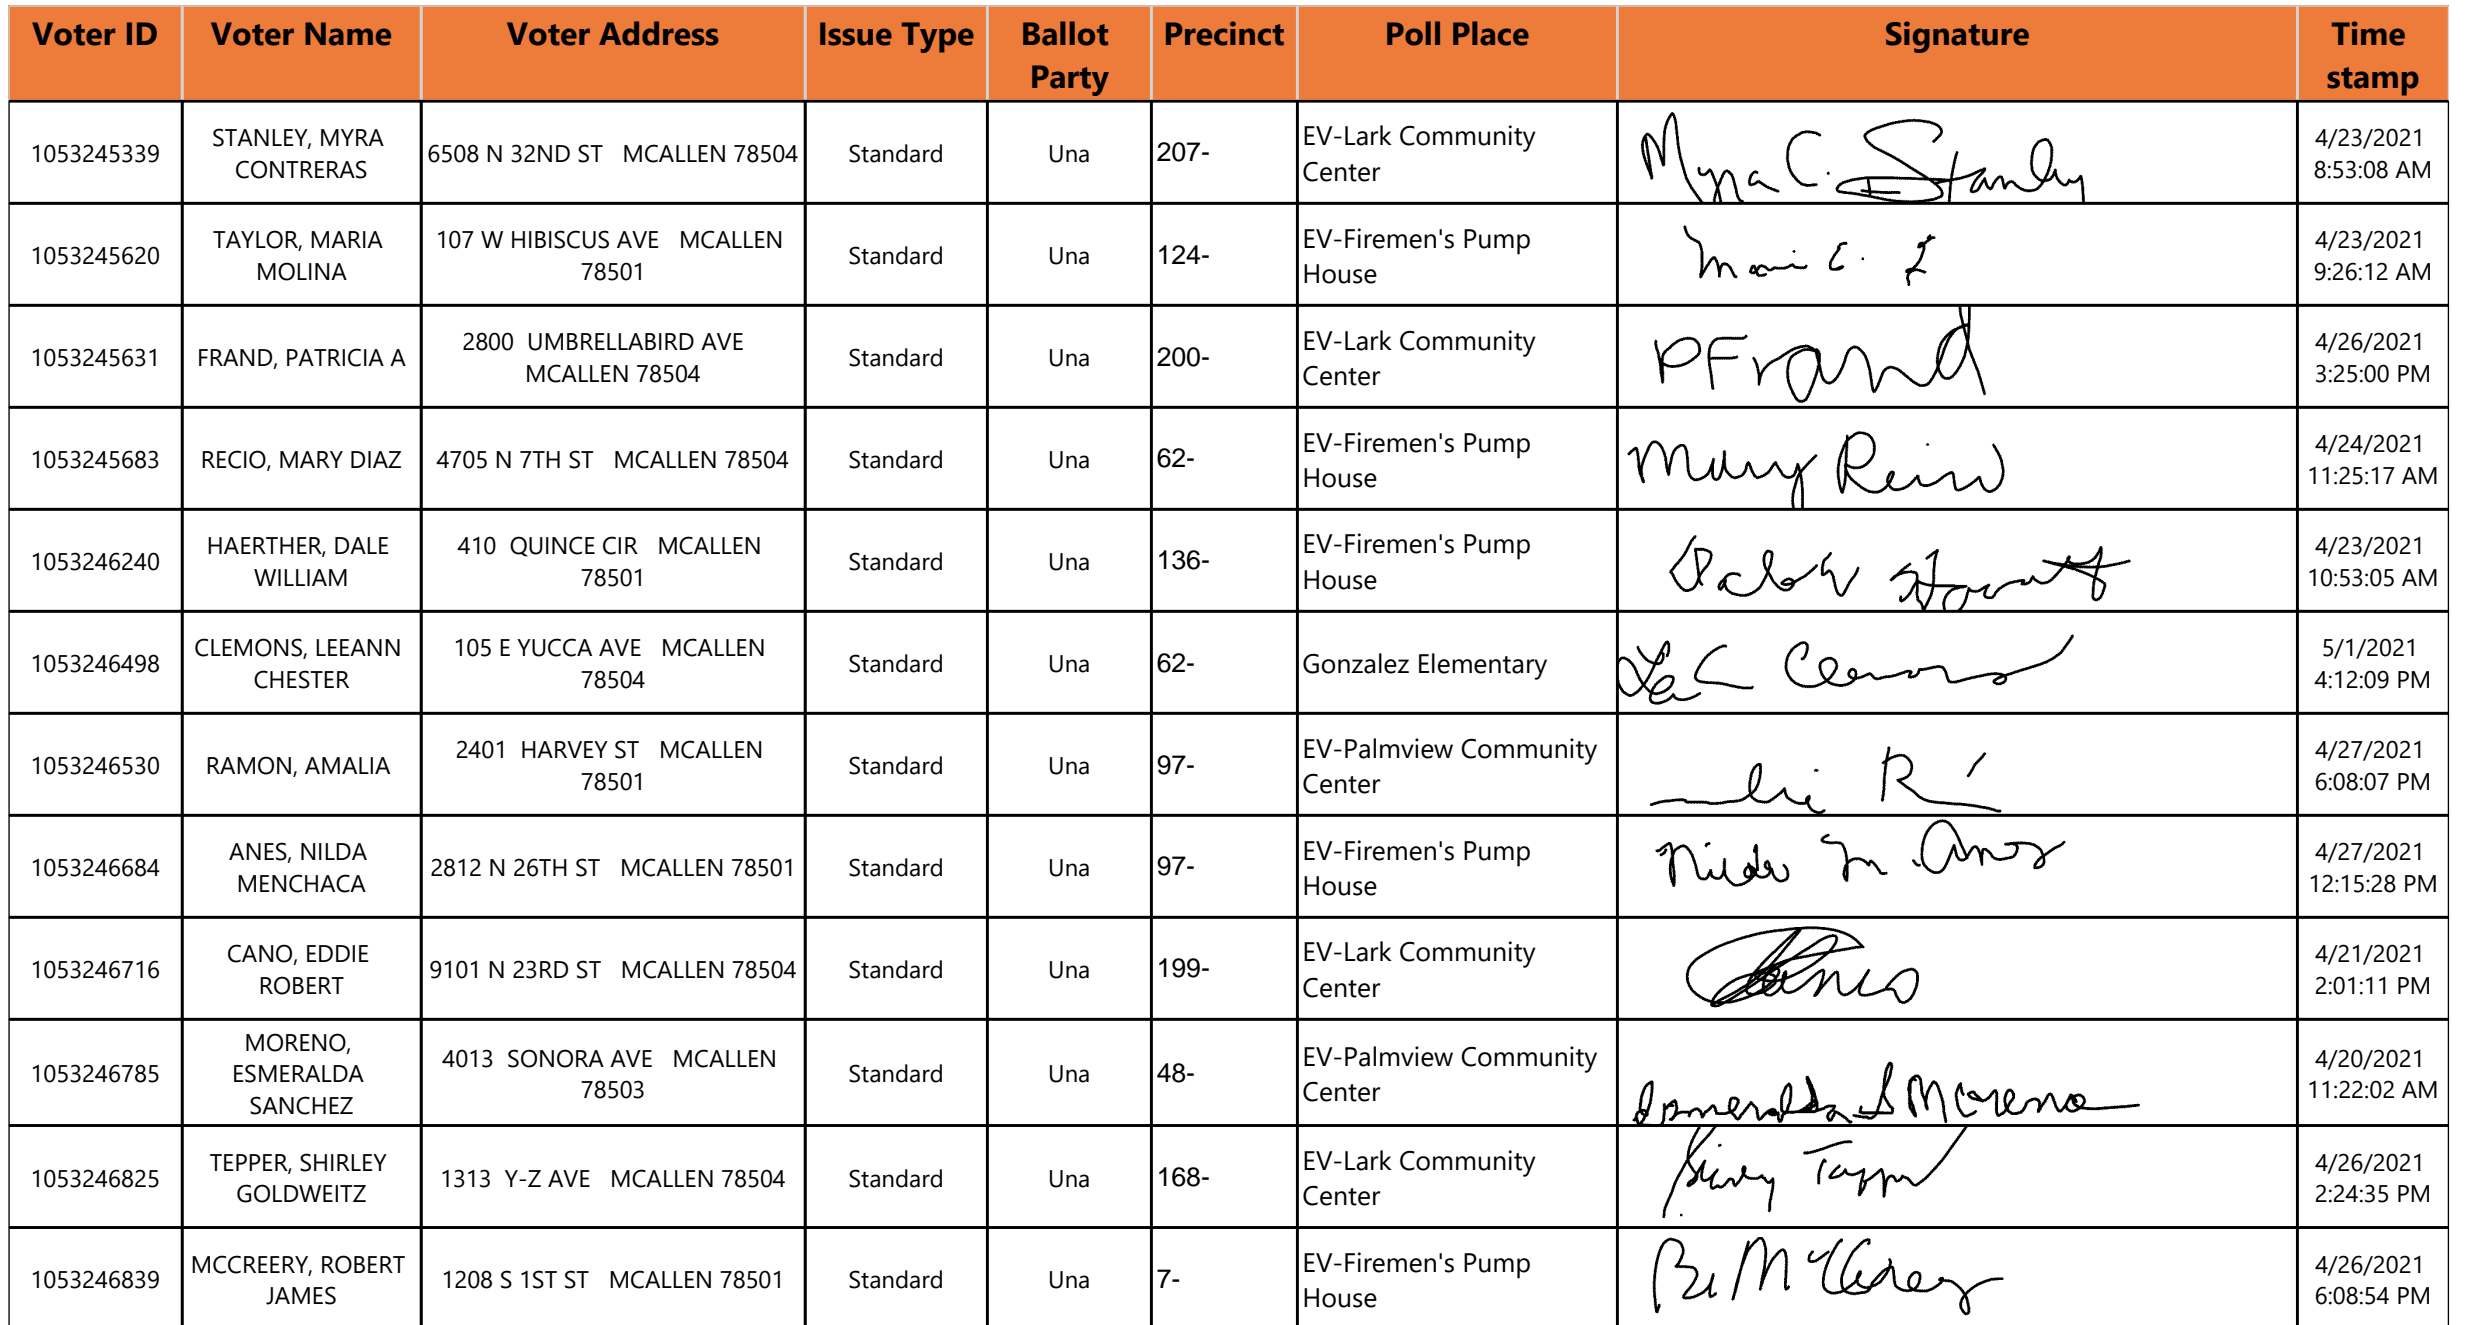 Voter ID Voter Name Voter Address Issue Type Ballot Party Precinct Poll Place Signature Time stamp
1053245339 STANLEY, MYRA CONTRERAS 6508 N 32ND ST MCALLEN 78504 Standard Una 207- EV-Lark Community Center Myra C. Stanley 4/23/2021 8:53:08 AM
1053245620 TAYLOR, MARIA MOLINA 107 W HIBISCUS AVE MCALLEN 78501 Standard Una 124- EV-Firemen's Pump House 4/23/2021 9:26:12 AM
1053245631 FRAND, PATRICIA A 2800 UMBRELLABIRD AVE MCALLEN 78504 Standard Una 200- EV-Lark Community Center PFrand 4/26/2021 3:25:00 PM
1053245683 RECIO, MARY DIAZ 4705 N 7TH ST MCALLEN 78504 Standard Una 62- EV-Firemen's Pump House Mary Recio 4/24/2021 11:25:17 AM
1053246240 HAERTHER, DALE WILLIAM 410 QUINCE CIR MCALLEN 78501 Standard Una 136- EV-Firemen's Pump House 4/23/2021 10:53:05 AM
1053246498 CLEMONS, LEEANN CHESTER 105 E YUCCA AVE MCALLEN 78504 Standard Una 62- Gonzalez Elementary 5/1/2021 4:12:09 PM
1053246530 RAMON, AMALIA 2401 HARVEY ST MCALLEN 78501 Standard Una 97- EV-Palmview Community Center 4/27/2021 6:08:07 PM
1053246684 ANES, NILDA MENCHACA 2812 N 26TH ST MCALLEN 78501 Standard Una 97- EV-Firemen's Pump House Nilda M. Anes 4/27/2021 12:15:28 PM
1053246716 CANO, EDDIE ROBERT 9101 N 23RD ST MCALLEN 78504 Standard Una 199- EV-Lark Community Center 4/21/2021 2:01:11 PM
1053246785 MORENO, ESMERALDA SANCHEZ 4013 SONORA AVE MCALLEN 78503 Standard Una 48- EV-Palmview Community Center Esmeralda S Moreno 4/20/2021 11:22:02 AM
1053246825 TEPPER, SHIRLEY GOLDWEITZ 1313 Y-Z AVE MCALLEN 78504 Standard Una 168- EV-Lark Community Center 4/26/2021 2:24:35 PM
1053246839 MCCREERY, ROBERT JAMES 1208 S 1ST ST MCALLEN 78501 Standard Una 7- EV-Firemen's Pump House 4/26/2021 6:08:54 PM